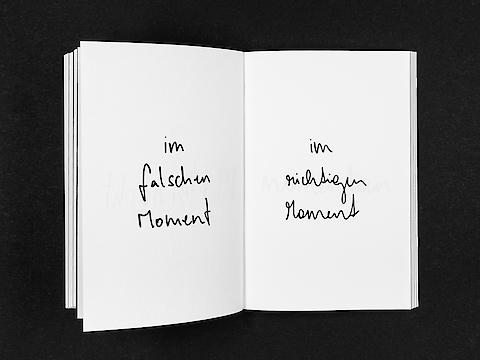 im
falschen
Moment
im
richtigen
Moment